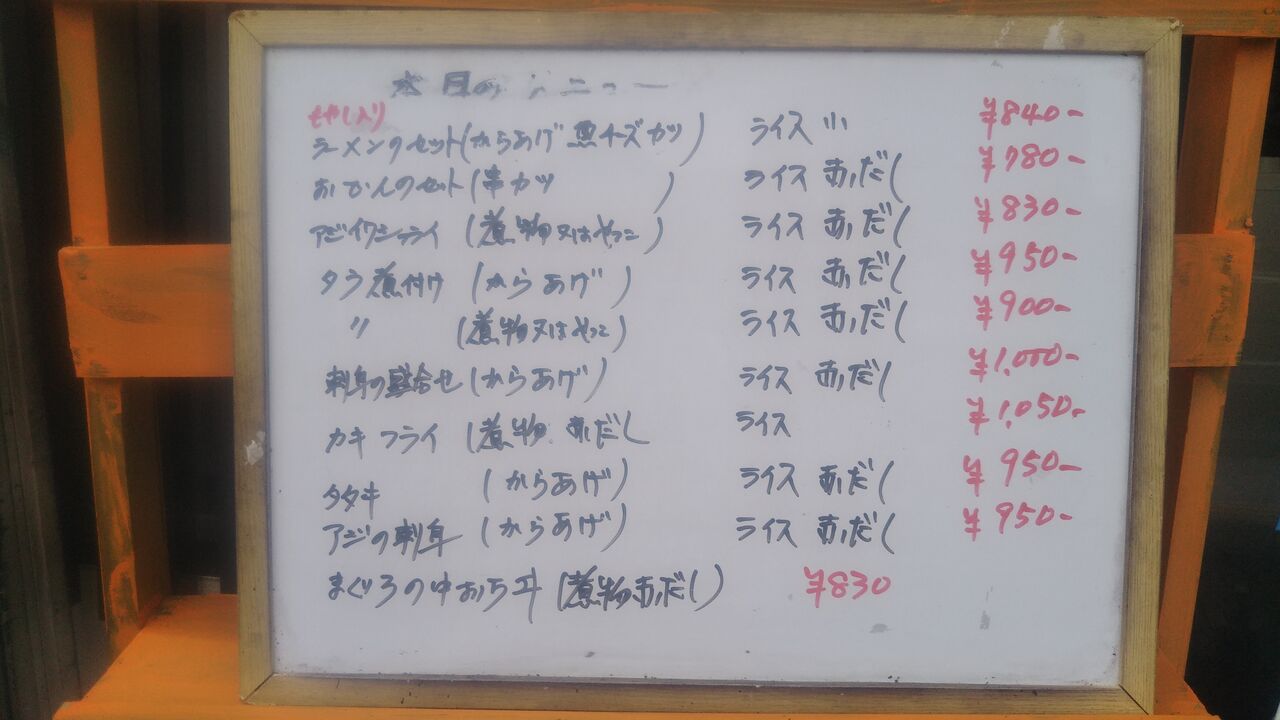 本日のメニュー
もやし入り
ラーメンのセット(からあげ 魚チーズカツ) ライス 小 ¥840-
おでんのセット(串カツ ) ライス 赤だし ¥780-
アジイワシフライ (煮物又はやっこ) ライス 赤だし ¥830-
タラ煮付け (からあげ) ライス 赤だし ¥950-
〃 (煮物又はやっこ) ライス 赤だし ¥900-
刺身の盛合せ (からあげ) ライス 赤だし ¥1,000-
カキフライ (煮物 赤だし ライス ¥1,050-
タタキ (からあげ) ライス 赤だし ¥950-
アジの刺身 (からあげ) ライス 赤だし ¥950-
まぐろの中おち丼 (煮物 赤だし) ¥830